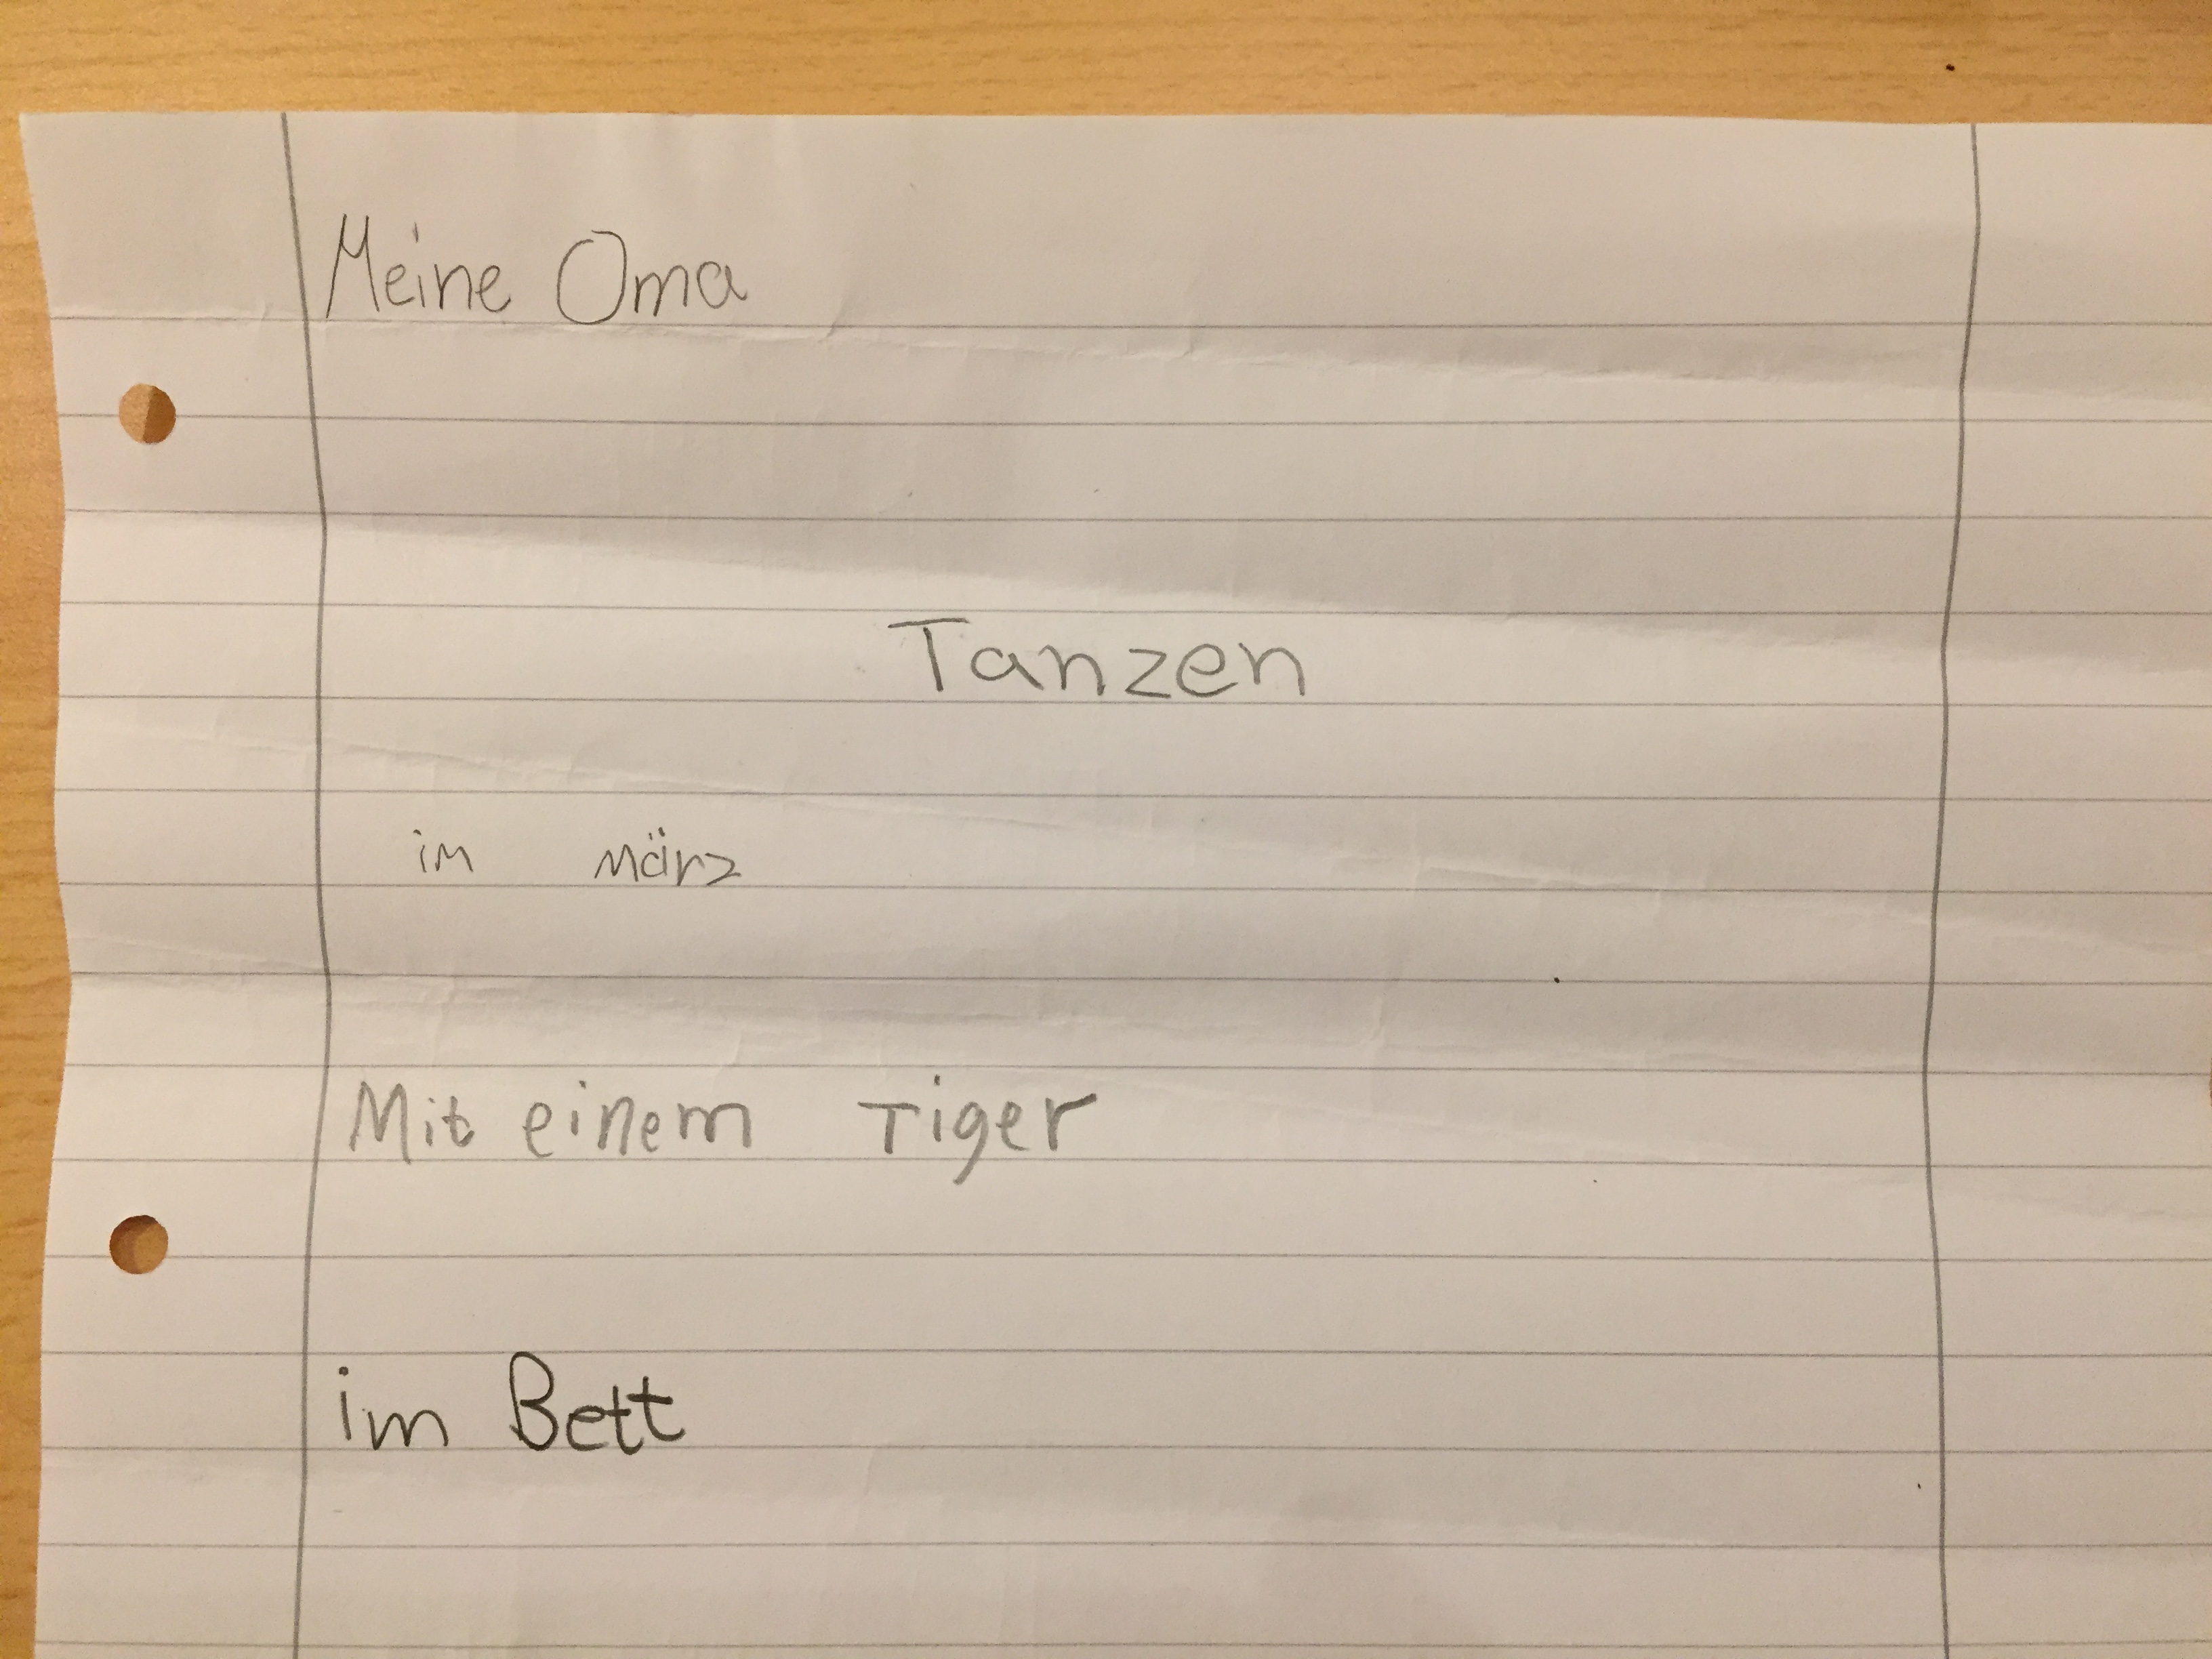 Meine Oma
Tanzen
im märz
Mit einem Tiger
im Bett